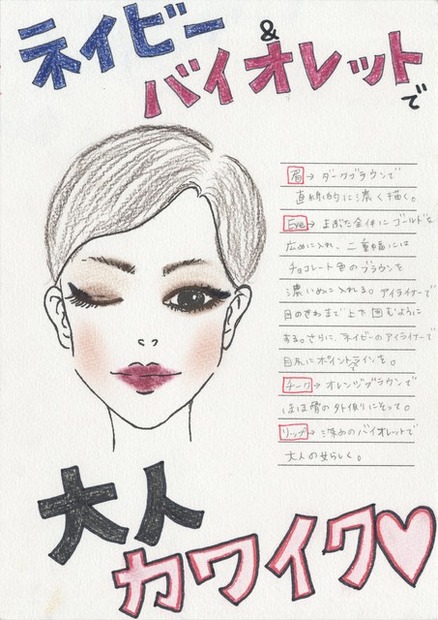 ネイビー
&
バイオレットで
眉→ダークブラウンで
直線的に濃く描く。
Eye→まぶた全体にゴールドを
広めに入れ、二重幅には
チョコレート色のブラウンを
濃いめに入れる。アイライナーで
目のきわまで上下囲むように
する。さらに、ネイビーのアイライナーで
目尻にポイントラインを。
チーク→オレンジブラウンで
ほほ骨の外側にそって。
リップ→深めのバイオレットで
大人の女らしく。
大人
カワイク♡